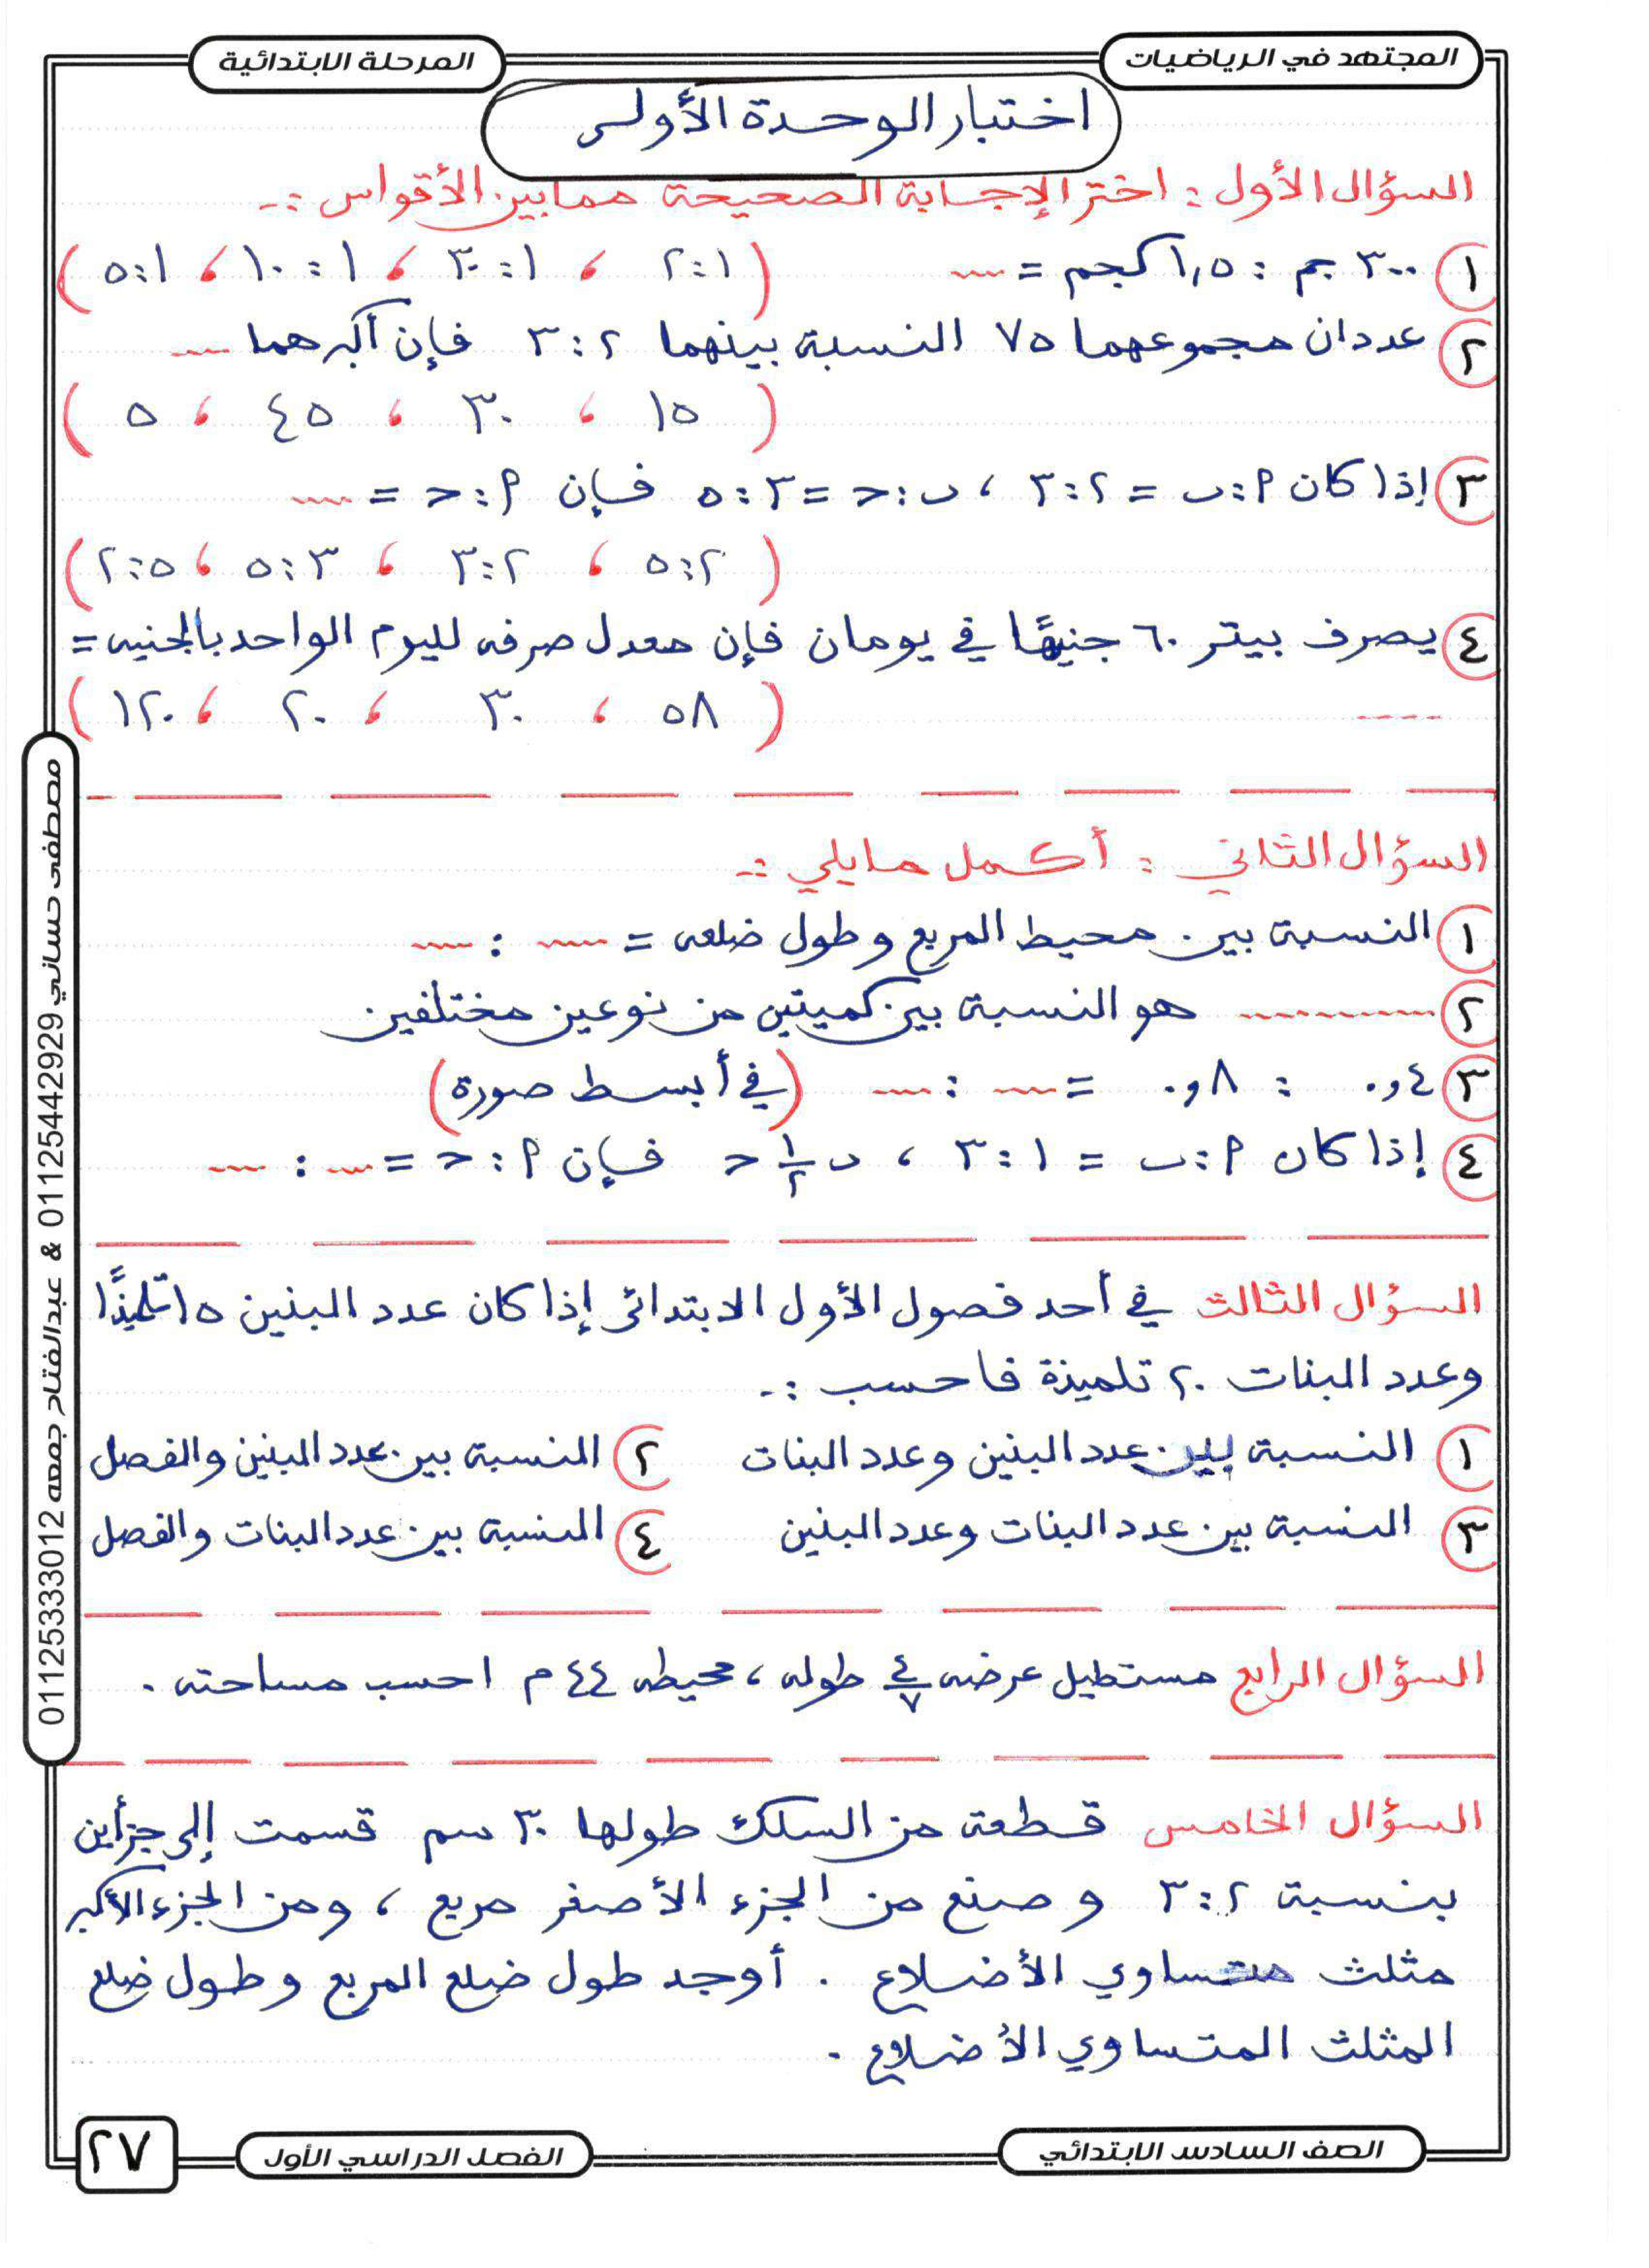 المجتهد في الرياضيات
المرحلة الابتدائية
اختبار الوحدة الأولى
السؤال الأول : اختر الإجابة الصحيحة مما بين الأقواس :-
١ ٣٠٠ جم : ١,٥ كجم = ---- ( ١:٢ ، ١:٣٠ ، ١:١٠ ، ١:٥ )
٢ عددان مجموعهما ٧٥ النسبة بينهما ٢:٣ فإن أكبرهما ----
( ١٥ ، ٣٠ ، ٤٥ ، ٥ )
٣ إذا كان م:ب = ٢:٣ ، ب:ح = ٣:٥ فإن م:ح = ----
( ٢:٥ ، ٢:٣ ، ٣:٥ ، ٥:٢ )
٤ يصرف بيتر ٦٠ جنيهًا في يومان فإن معدل صرفه لليوم الواحد بالجنيه =
---- ( ٥٨ ، ٣٠ ، ٢٠ ، ١٢٠ )
السؤال الثاني : أكمل مايلي :-
١ النسبة بين محيط المربع وطول ضلعه = ---- : ----
٢ ---------- هو النسبة بين كميتين من نوعين مختلفين
٣ ٠,٤ : ٠,٨ = ---- : ---- (في أبسط صورة)
٤ إذا كان م:ب = ١:٣ ، ب ١/٢ ح فإن م:ح = ---- : ----
السؤال الثالث في أحد فصول الأول الابتدائى إذا كان عدد البنين ١٥ تلميذًا
وعدد البنات ٢٠ تلميذة فاحسب :-
١ النسبة بين عدد البنين وعدد البنات ٢ النسبة بين عدد البنين والفصل
٣ النسبة بين عدد البنات وعدد البنين ٤ النسبة بين عدد البنات والفصل
السؤال الرابع مستطيل عرضه ٤/٧ طوله ، محيطه ٤٤ م احسب مساحته .
السؤال الخامس قطعة من السلك طولها ٣٠ سم قسمت إلى جزأين
بنسبة ٢:٣ وصنع من الجزء الأصغر مربع ، ومن الجزء الأكبر
مثلث متساوي الأضلاع . أوجد طول ضلع المربع وطول ضلع
المثلث المتساوي الأضلاع .
مصطفى حساني 01125442929 & عبدالفتاح جمعه 01125333012
الصف السادس الابتدائي
الفصل الدراسي الأول
٢٧